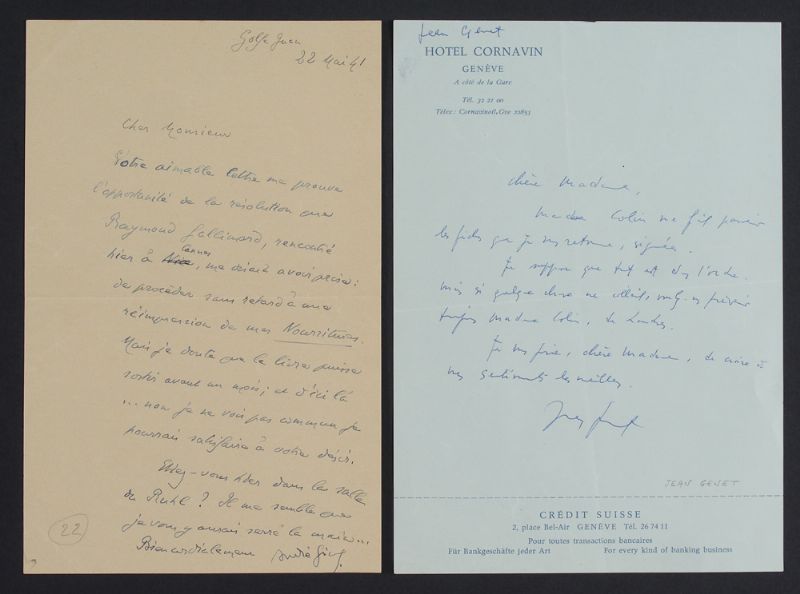 Golfe Juan
22 Mai 41
Cher Monsieur
Votre aimable lettre me prouve
l'opportunité de la résolution que
Raymond Gallimard, rencontré
hier à Cannes, me disait avoir prise:
de procéder sans retard à une
réimpression de mes Nourritures.
Mais je doute que le livre puisse
sortir avant un mois; et d'ici là
... non je ne vois pas comment je
pourrais satisfaire à votre désir.
Etiez-vous hier dans la salle
du Ruhl? Il me semble que
je vous y aurais serré la main...
Bien cordialement André Gide
22
Jean Genet
HOTEL CORNAVIN
GENÈVE
A côté de la Gare
Tél. 32 21 00
Telex: Cornavinotl, Gve 22853
chère Madame,
Madame Colin me fit parvenir
les que je vous retourne, signées.
Je suppose que tout est dans l'ordre.
mais si quelque chose ne collait, prévenir
toujours Madame Colin, de Londres.
Je vous prie, chère Madame, de croire à
mes sentiments les meilleurs.
Jean Genet
JEAN GENET
CRÉDIT SUISSE
2, place Bel-Air GENÈVE Tél. 26 74 11
Pour toutes transactions bancaires
Für Bankgeschäfte jeder Art For every kind of banking business